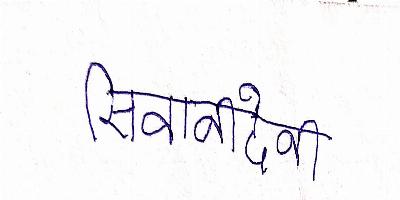 सिवानीदेवी